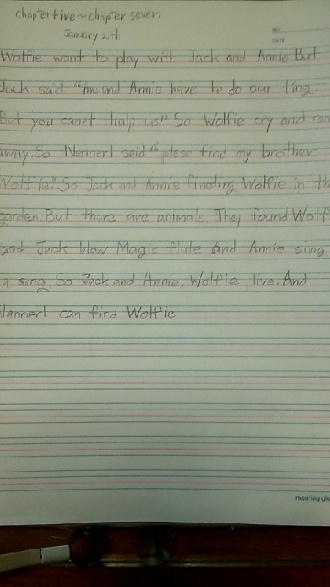 chapter five ~ chapter seven
January 24th
NO.
DATE
Wolfie want to play with Jack and Annie. But
Jack said "me and Annie have to do our ting.
But you can't hulp us" So Wolfie cry and ran
away. So Nannerl said "plese find my brother
Wolfie". So Jack and Annie finding Wolfie in th
garden. But there are animals. They found Wolf
and Jack blow Magic flute and Annie sing
a song. So Jack and Annie, Wolfie live. And
Nannerl can find Wolfie